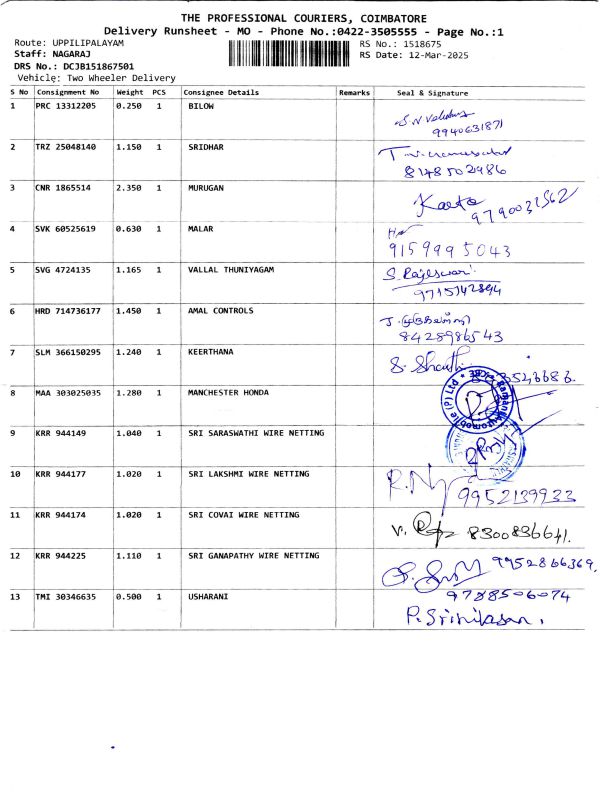 THE PROFESSIONAL COURIERS, COIMBATORE
Delivery Runsheet - MO - Phone No.:0422-3505555 - Page No.:1
Route: UPPILIPALAYAM
RS No.: 1518675
Staff: NAGARAJ
RS Date: 12-Mar-2025
DRS No.: DCJB151867501
Vehicle: Two Wheeler Delivery
S No Consignment No Weight PCS Consignee Details Remarks Seal & Signature
1 PRC 13312205 0.250 1 BILOW
9940631871
2 TRZ 25048140 1.150 1 SRIDHAR
8148502986
3 CNR 1865514 2.350 1 MURUGAN
4 SVK 60525619 0.630 1 MALAR
9159995043
5 SVG 4724135 1.165 1 VALLAL THUNIYAGAM
S. Rajeswari
6 HRD 714736177 1.450 1 AMAL CONTROLS
8428986543
7 SLM 366150295 1.240 1 KEERTHANA
S. Shanthi
8 MAA 303025035 1.280 1 MANCHESTER HONDA
9 KRR 944149 1.040 1 SRI SARASWATHI WIRE NETTING
10 KRR 944177 1.020 1 SRI LAKSHMI WIRE NETTING
9952139933
11 KRR 944174 1.020 1 SRI COVAI WIRE NETTING
8300836641.
12 KRR 944225 1.110 1 SRI GANAPATHY WIRE NETTING
9952866369.
13 TMI 30346635 0.500 1 USHARANI
9788506074
P. Srinivasan.